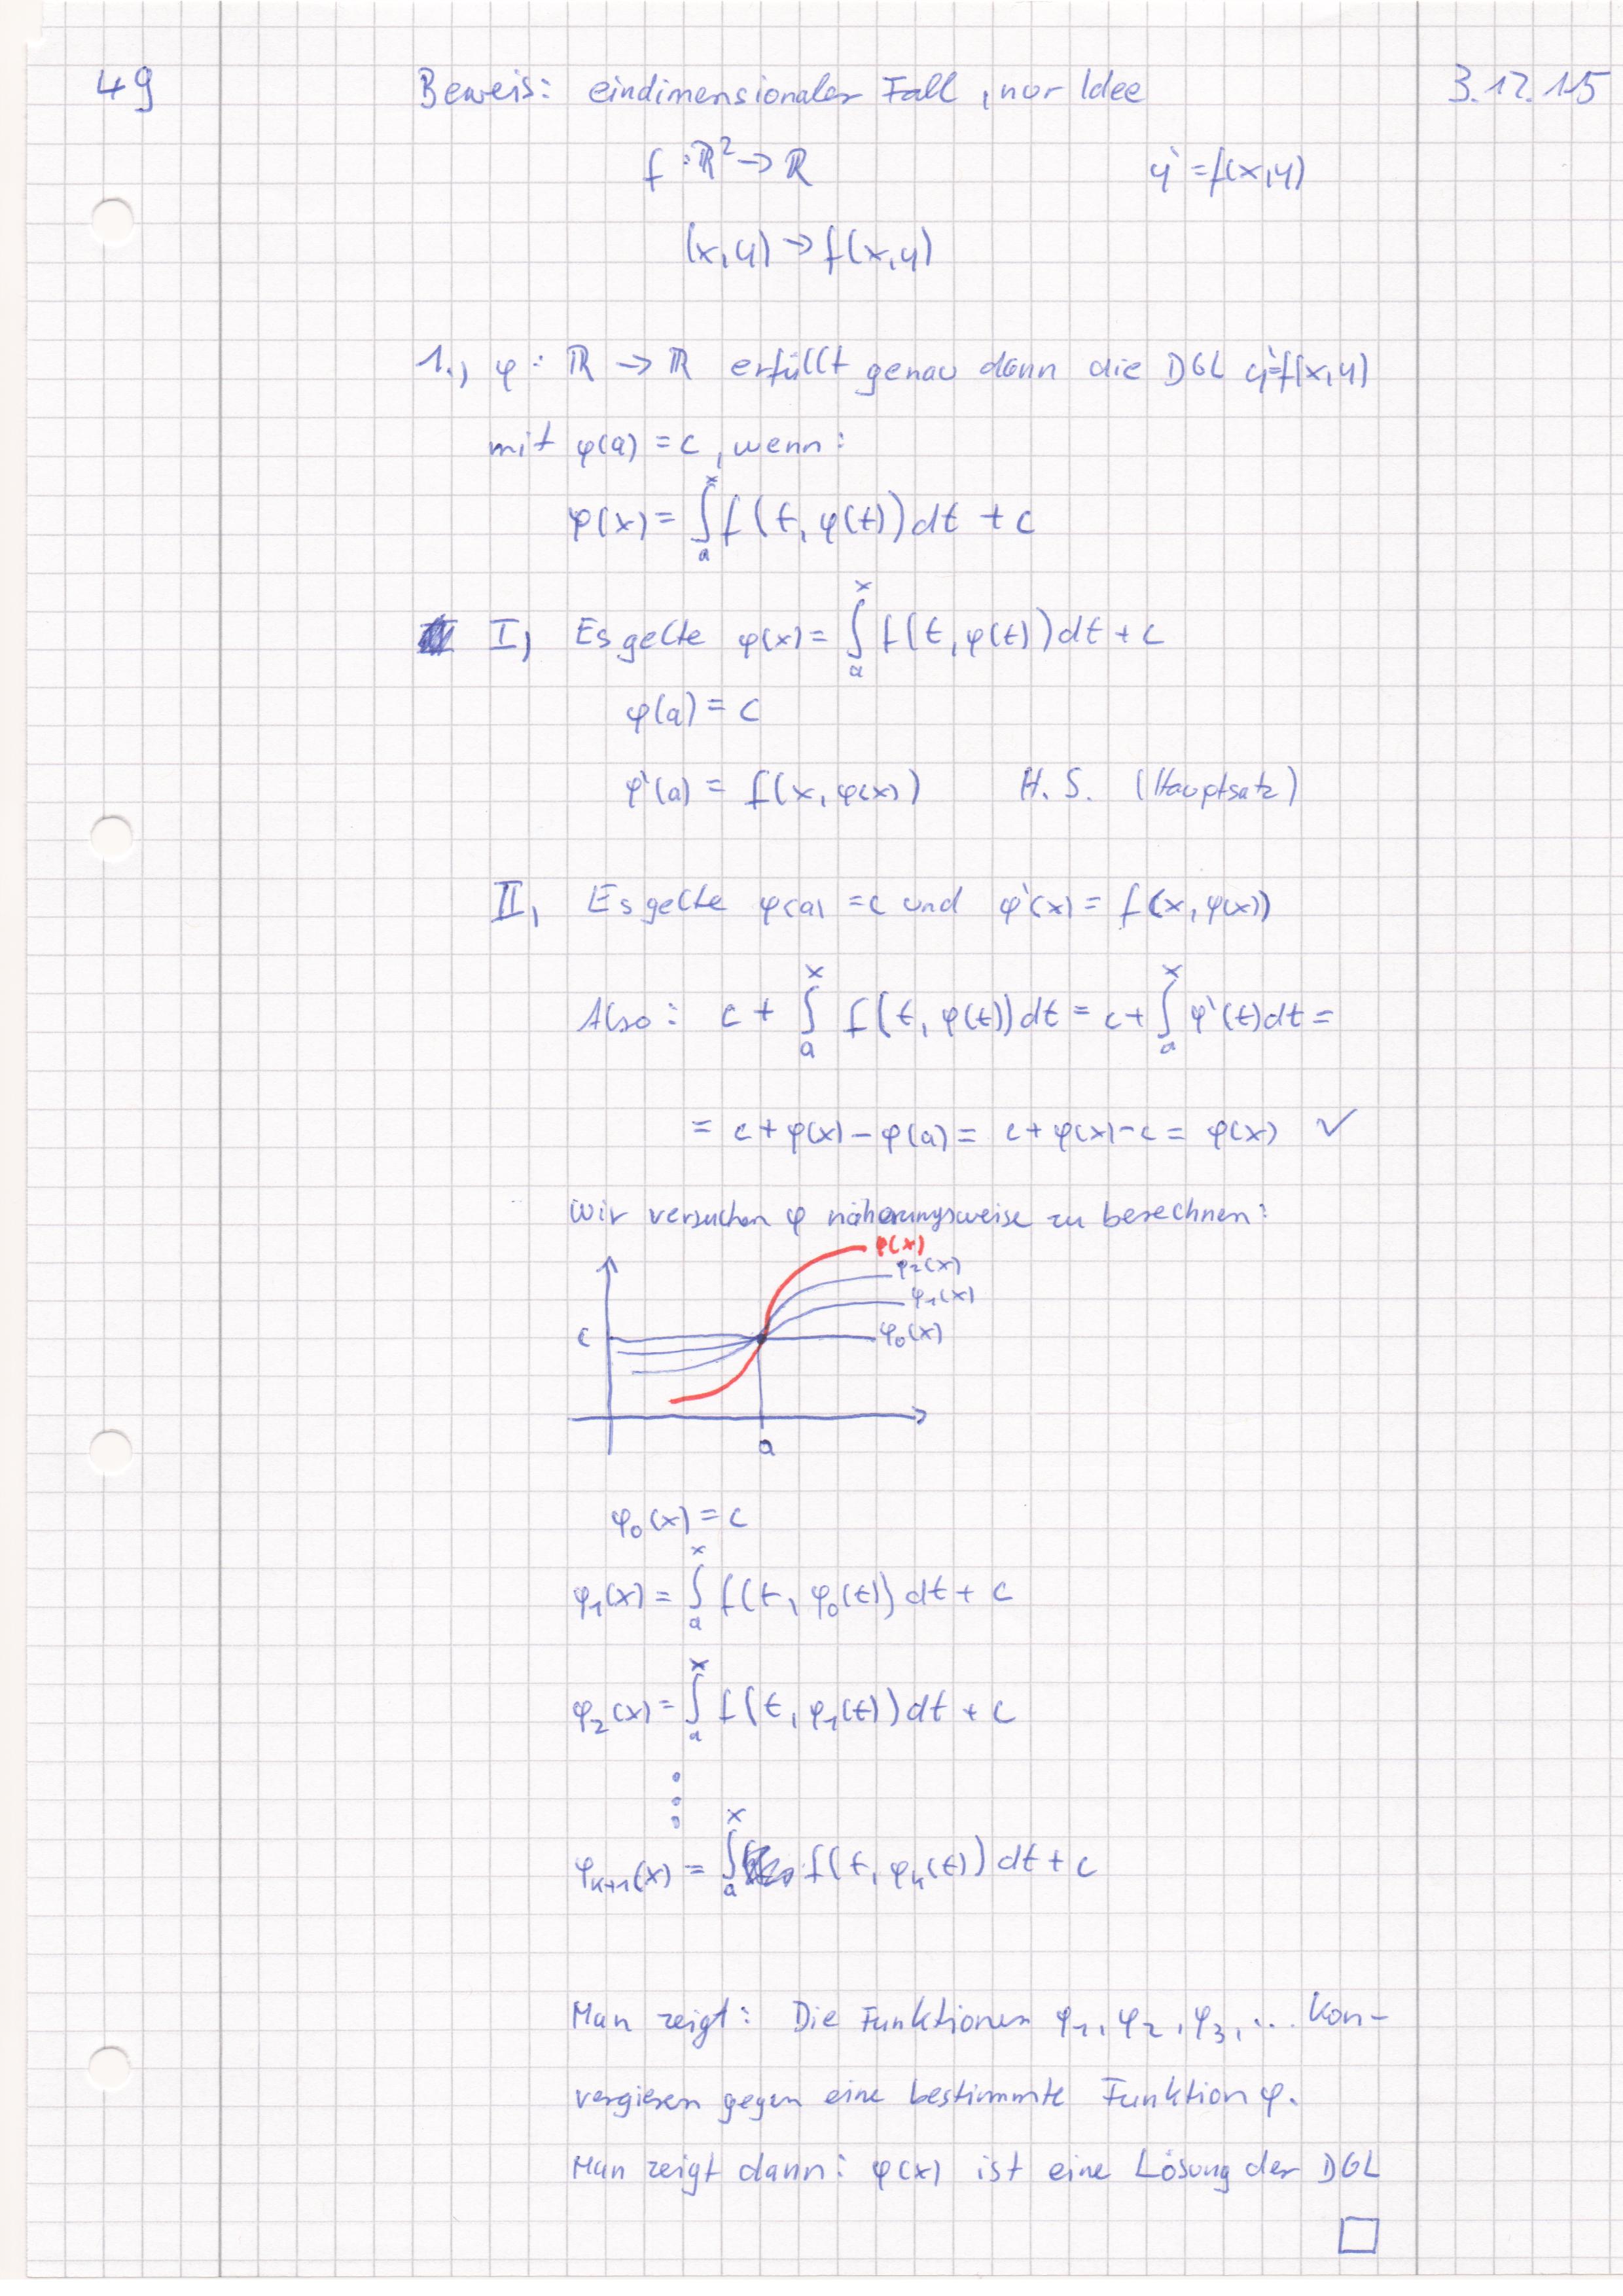 49 Beweis: eindimensionaler Fall, nur Idee 3.12.15
f : ℝ² → ℝ y' = f(x,y)
(x,y) → f(x,y)
1.) φ : ℝ → ℝ erfüllt genau dann die DGL y'=f(x,y)
mit φ(a) = c, wenn:
φ(x) = ∫ₐˣ f(t, φ(t)) dt + c
I) Es gelte φ(x) = ∫ₐˣ f(t, φ(t)) dt + c
φ(a) = c
φ'(a) = f(x, φ(x)) H.S. (Hauptsatz)
II) Es gelte φ(a) = c und φ'(x) = f(x, φ(x))
Also: c + ∫ₐˣ f(t, φ(t)) dt = c + ∫ₐˣ φ'(t) dt =
= c + φ(x) − φ(a) = c + φ(x) − c = φ(x) ✓
Wir versuchen φ näherungsweise zu berechnen:
φ(x)
φ₂(x)
φ₁(x)
c φ₀(x)
a
φ₀(x) = c
φ₁(x) = ∫ₐˣ f(t, φ₀(t)) dt + c
φ₂(x) = ∫ₐˣ f(t, φ₁(t)) dt + c
⋮
φₖ₊₁(x) = ∫ₐˣ f(t, φₖ(t)) dt + c
Man zeigt: Die Funktionen φ₁, φ₂, φ₃, ... kon-
vergieren gegen eine bestimmte Funktion φ.
Man zeigt dann: φ(x) ist eine Lösung der DGL
□